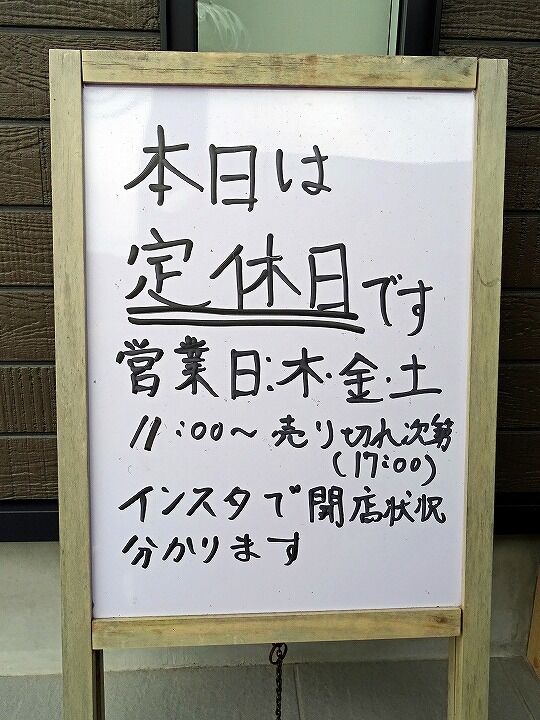 本日は
定休日です
営業日:木・金・土
11:00～売り切れ次第
(17:00)
インスタで開店状況
分かります